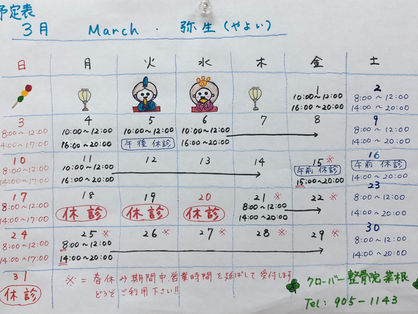 予定表
3月 March . 弥生(やよい)
日 月 火 水 木 金 土
1 2
10:00~12:00 8:00~12:00
16:00~20:00 14:00~17:00
3 4 5 6 7 8 9
8:00~12:00 10:00~12:00 10:00~12:00 10:00~12:00 8:00~12:00
14:00~17:00 16:00~20:00 午後休診 16:00~20:00 14:00~17:00
10 11 12 13 14 15※ 16
8:00~12:00 10:00~12:00 午前休診 午前休診
14:00~17:00 16:00~20:00 15:00~20:00 14:00~17:00
17 18 19 20 21※ 22※ 23
8:00~12:00 休診 休診 休診 8:00~12:00 8:00~12:00
14:00~17:00 14:00~20:00 14:00~17:00
24 25※ 26※ 27※ 28※ 29※ 30
8:00~12:00 8:00~12:00 8:00~12:00
14:00~17:00 14:00~20:00 14:00~17:00
31 ※=春休み期間中営業時間を延ばして受付けします
休診 どうぞご利用下さい!!
クローバー整骨院葉根
Tel: 905-1143